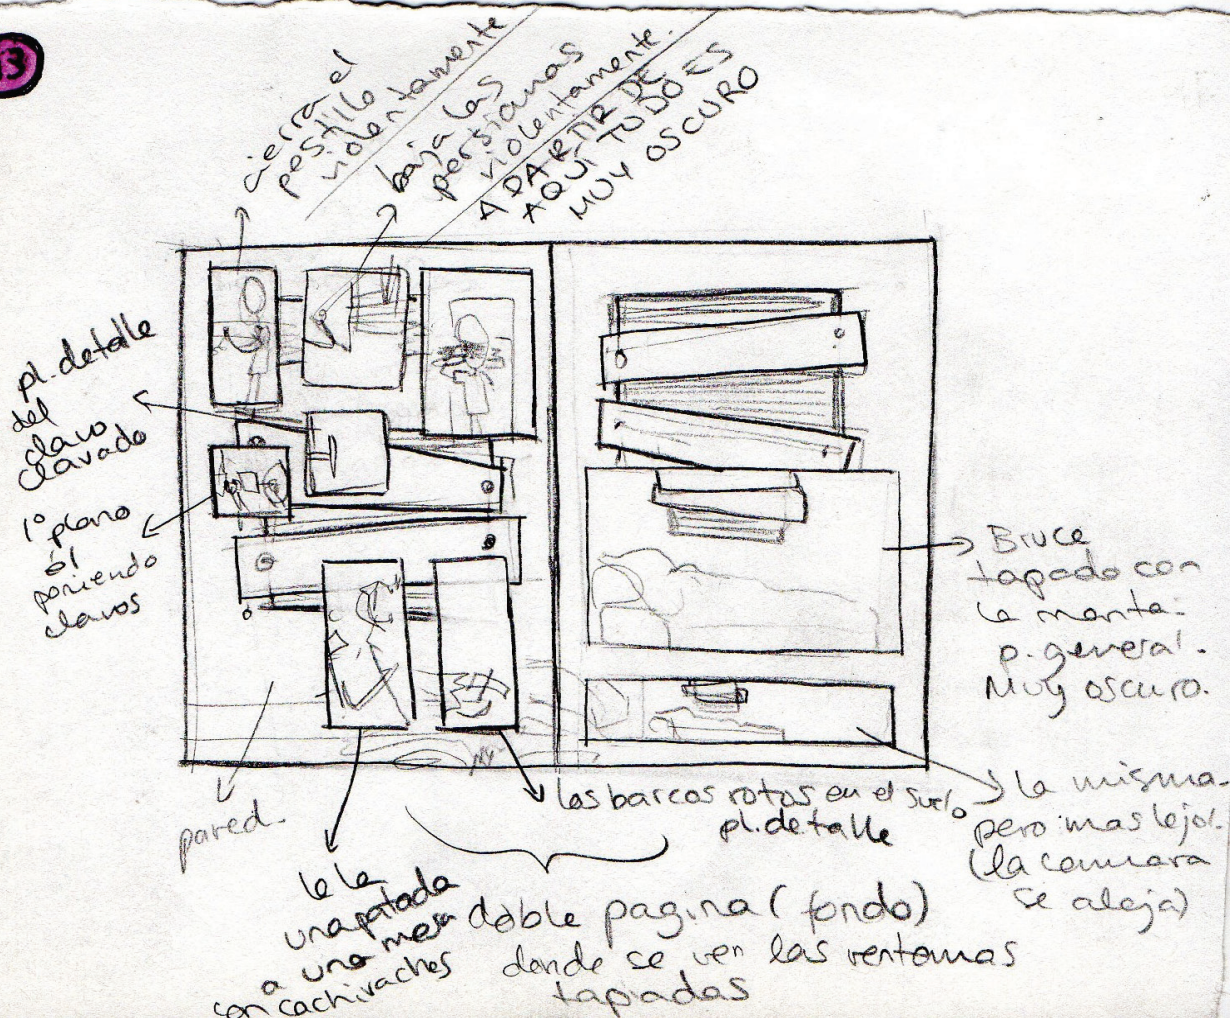 3
cierra el
pestillo
violentamente
baja las
persianas
violentamente.
A PARTIR DE
AQUÍ TODO ES
MUY OSCURO
pl. detalle
del
clavo
clavado
1º plano
él
poniendo
clavos
pared.
le la
una patada
a una mesa
con cachivaches
los barcos rotos en el suelo
pl. detalle
doble pagina (fondo)
donde se ven las ventanas
tapiadas
Bruce
tapado con
la manta.
p. general.
Muy oscuro.
la misma
pero mas lejos.
(la camara
se aleja)